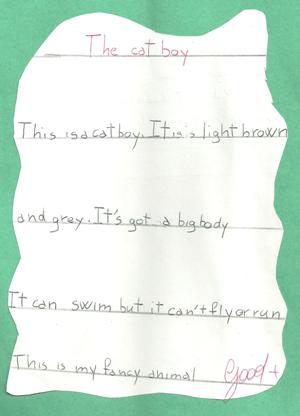 The cat boy
This is a cat boy. It is light brown
and grey. It's got a big body
It can swim but it can't fly or run
This is my fancy animal Good +